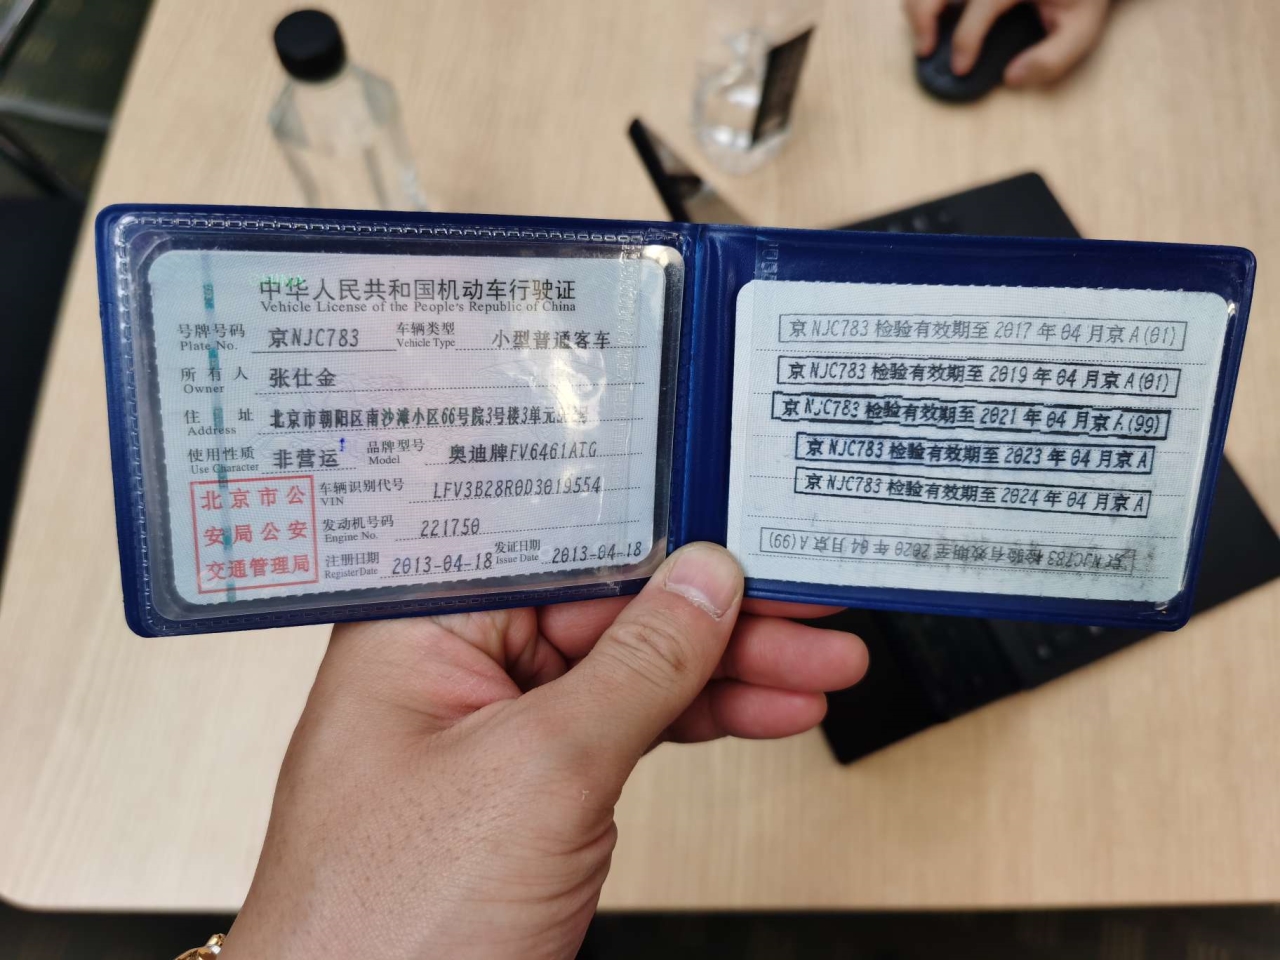 中华人民共和国机动车行驶证
Vehicle License of the People's Republic of China
号牌号码 京NJC783 车辆类型 小型普通客车
Plate No. Vehicle Type
所有人 张仕金
Owner
住址 北京市朝阳区南沙滩小区66号院3号楼3单元
Address
使用性质 非营运 品牌型号 奥迪牌FV6461ATG
Use Character Model
北京市公
安局公安
交通管理局
车辆识别代号 LFV3B28R0D3019554
VIN
发动机号码 221750
Engine No.
注册日期 2013-04-18 发证日期 2013-04-18
Register Date Issue Date
京NJC783检验有效期至2017年04月京A(01)
京NJC783检验有效期至2019年04月京A(01)
京NJC783检验有效期至2021年04月京A(99)
京NJC783检验有效期至2023年04月京A
京NJC783检验有效期至2024年04月京A
京NJC783检验有效期至2020年04月京A(99)